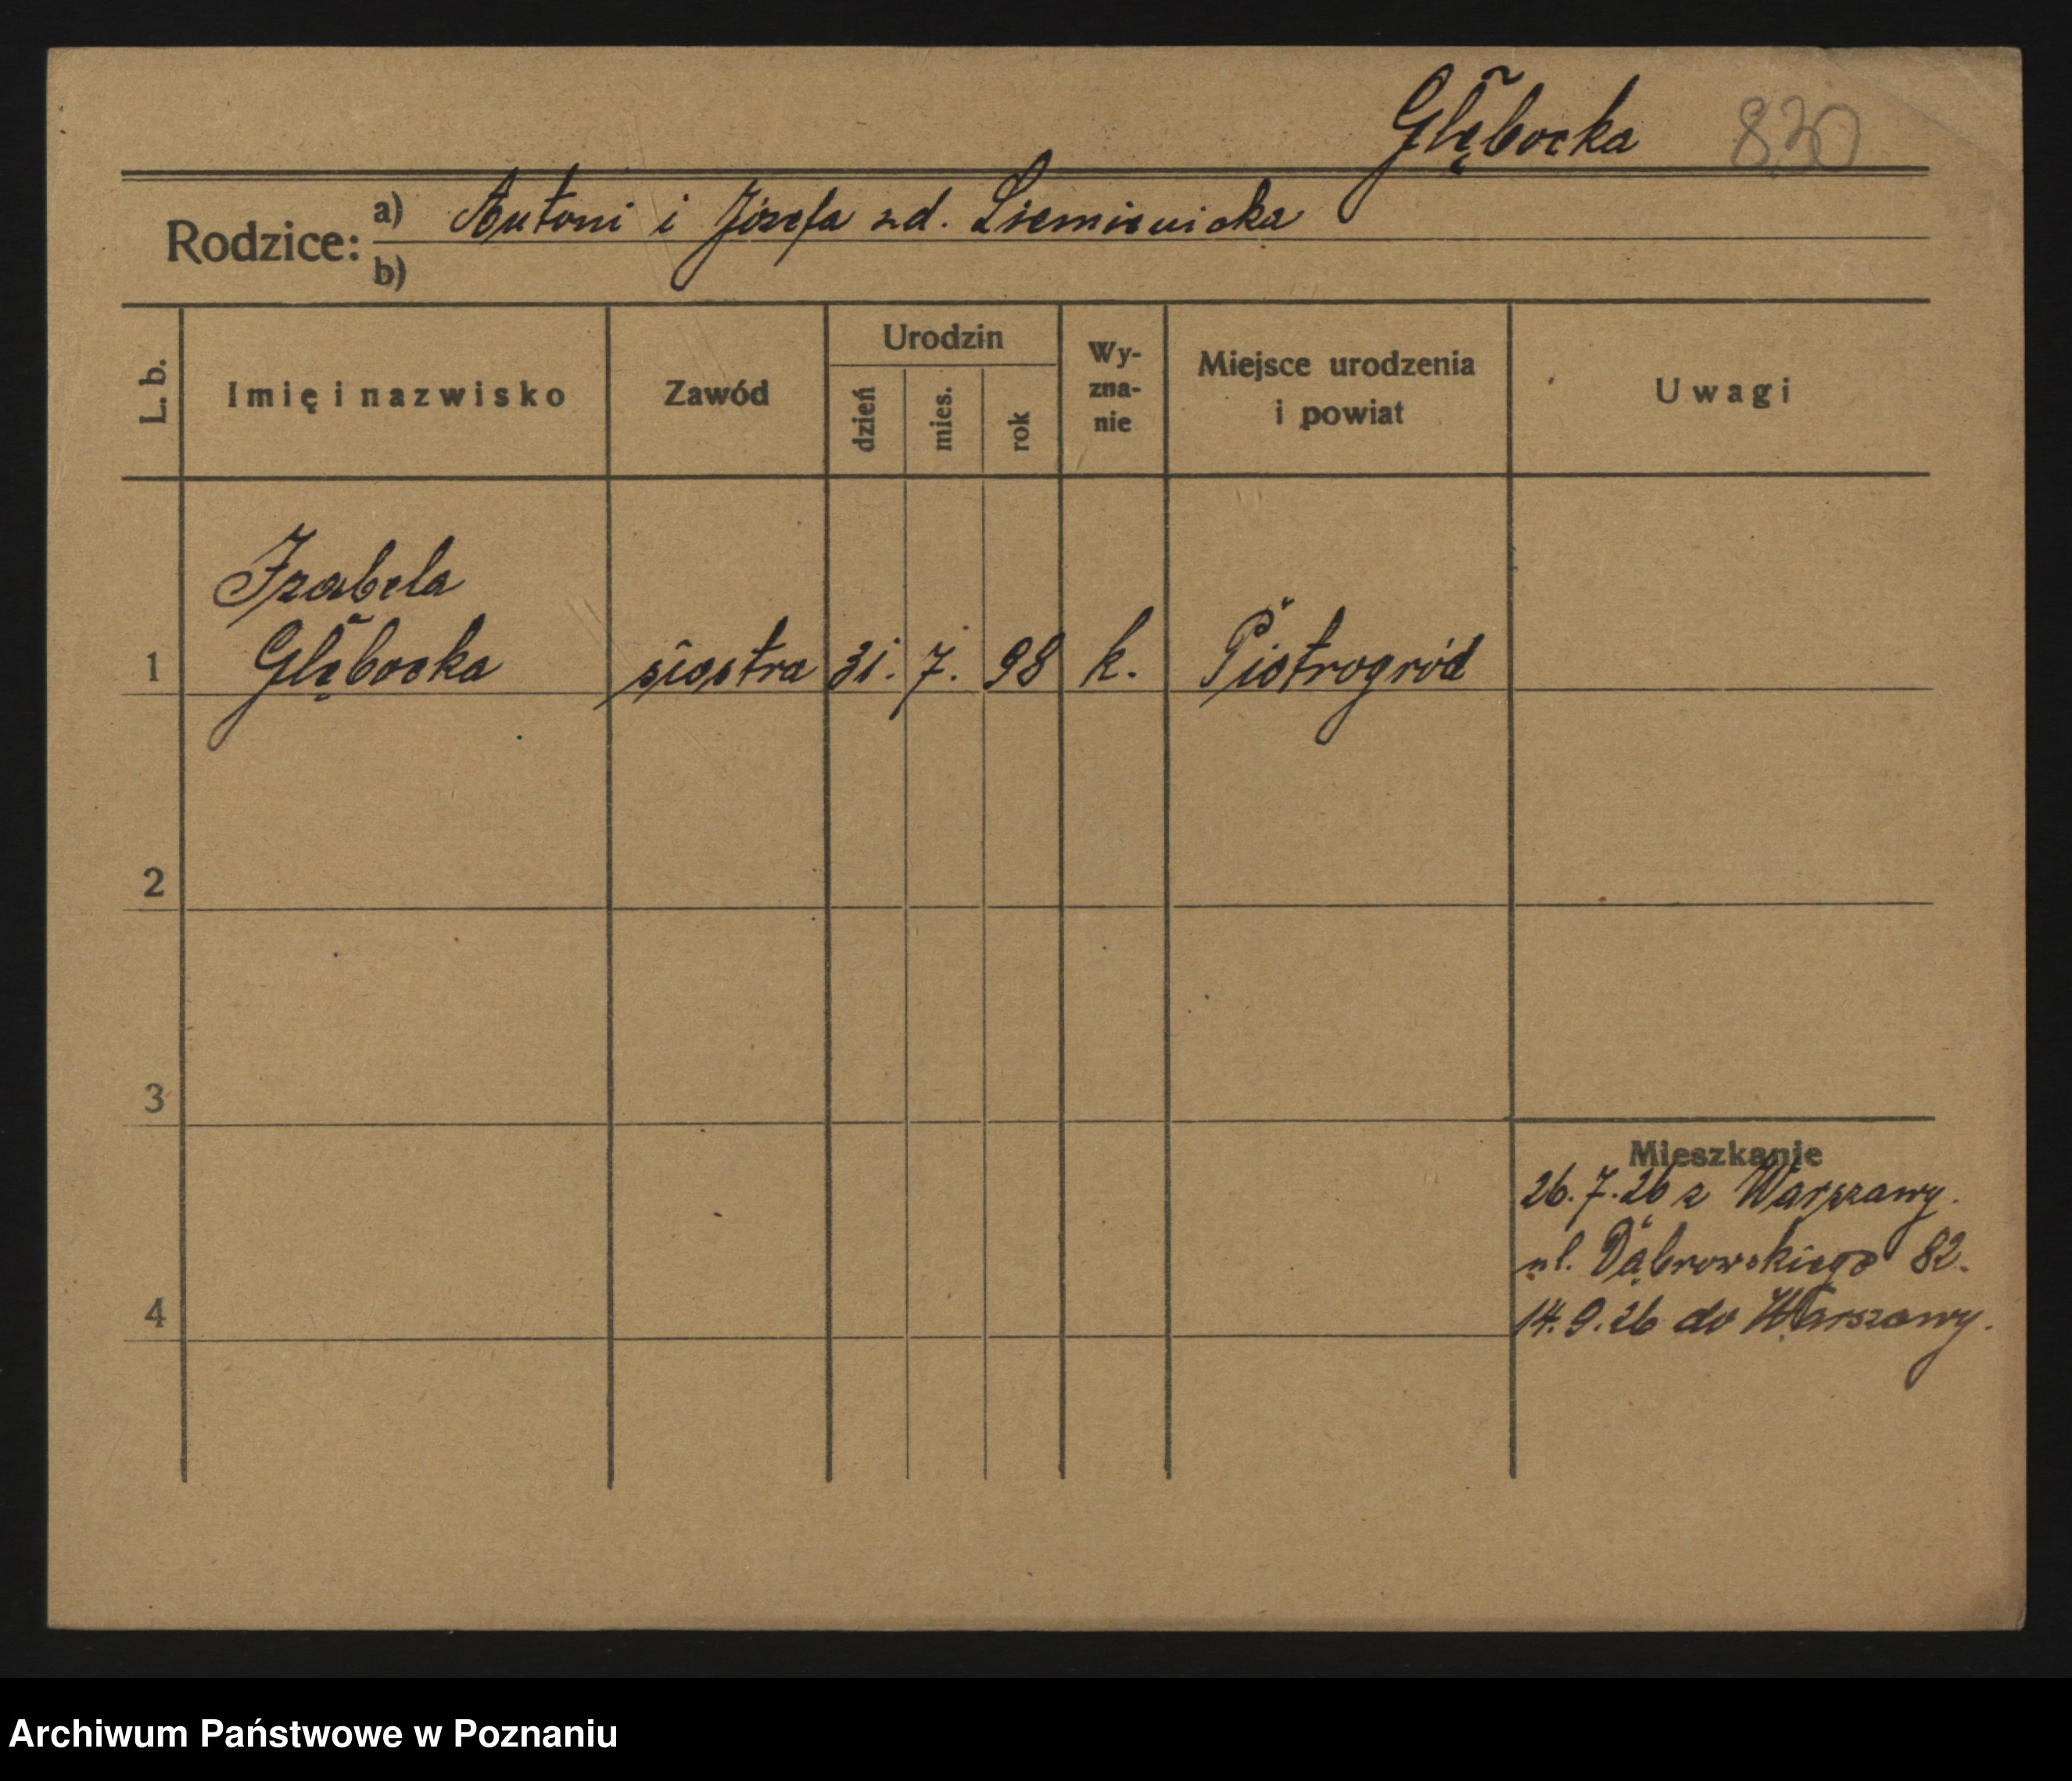 Głębocka 830
Rodzice: a) Antoni i Józefa zd.
b)
L. b. Imię i nazwisko Zawód Urodzin dzień mies. rok Wy-zna-nie Miejsce urodzenia i powiat Uwagi
Izabela
1 Głębocka siostra 31. 7. 98 k. Piotrogród
2
3
Mieszkanie
26.7.26 z Warszawy.
ul. Dąbrowskiego 82.
4 14.9.26 do Warszawy.
Archiwum Państwowe w Poznaniu